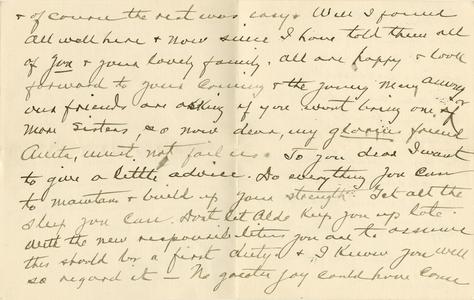 & of course the rest was easy. Well I found
all well here & now since I have told them all
of you & your lovely family, all are happy & look
forward to your coming & the young men among
our friends are asking if you wont bring one or
more sisters, so now dear, my glorious friend
Anita, must not fail us. To you dear I want
to give a little advice. Do everything you can
to maintain & build up your strength. Get all the
sleep you can. Dont let Aldo keep you up late.
With the new responsibilities you are to assume
this should be a first duty & I know you will
so regard it — No greater joy could have come